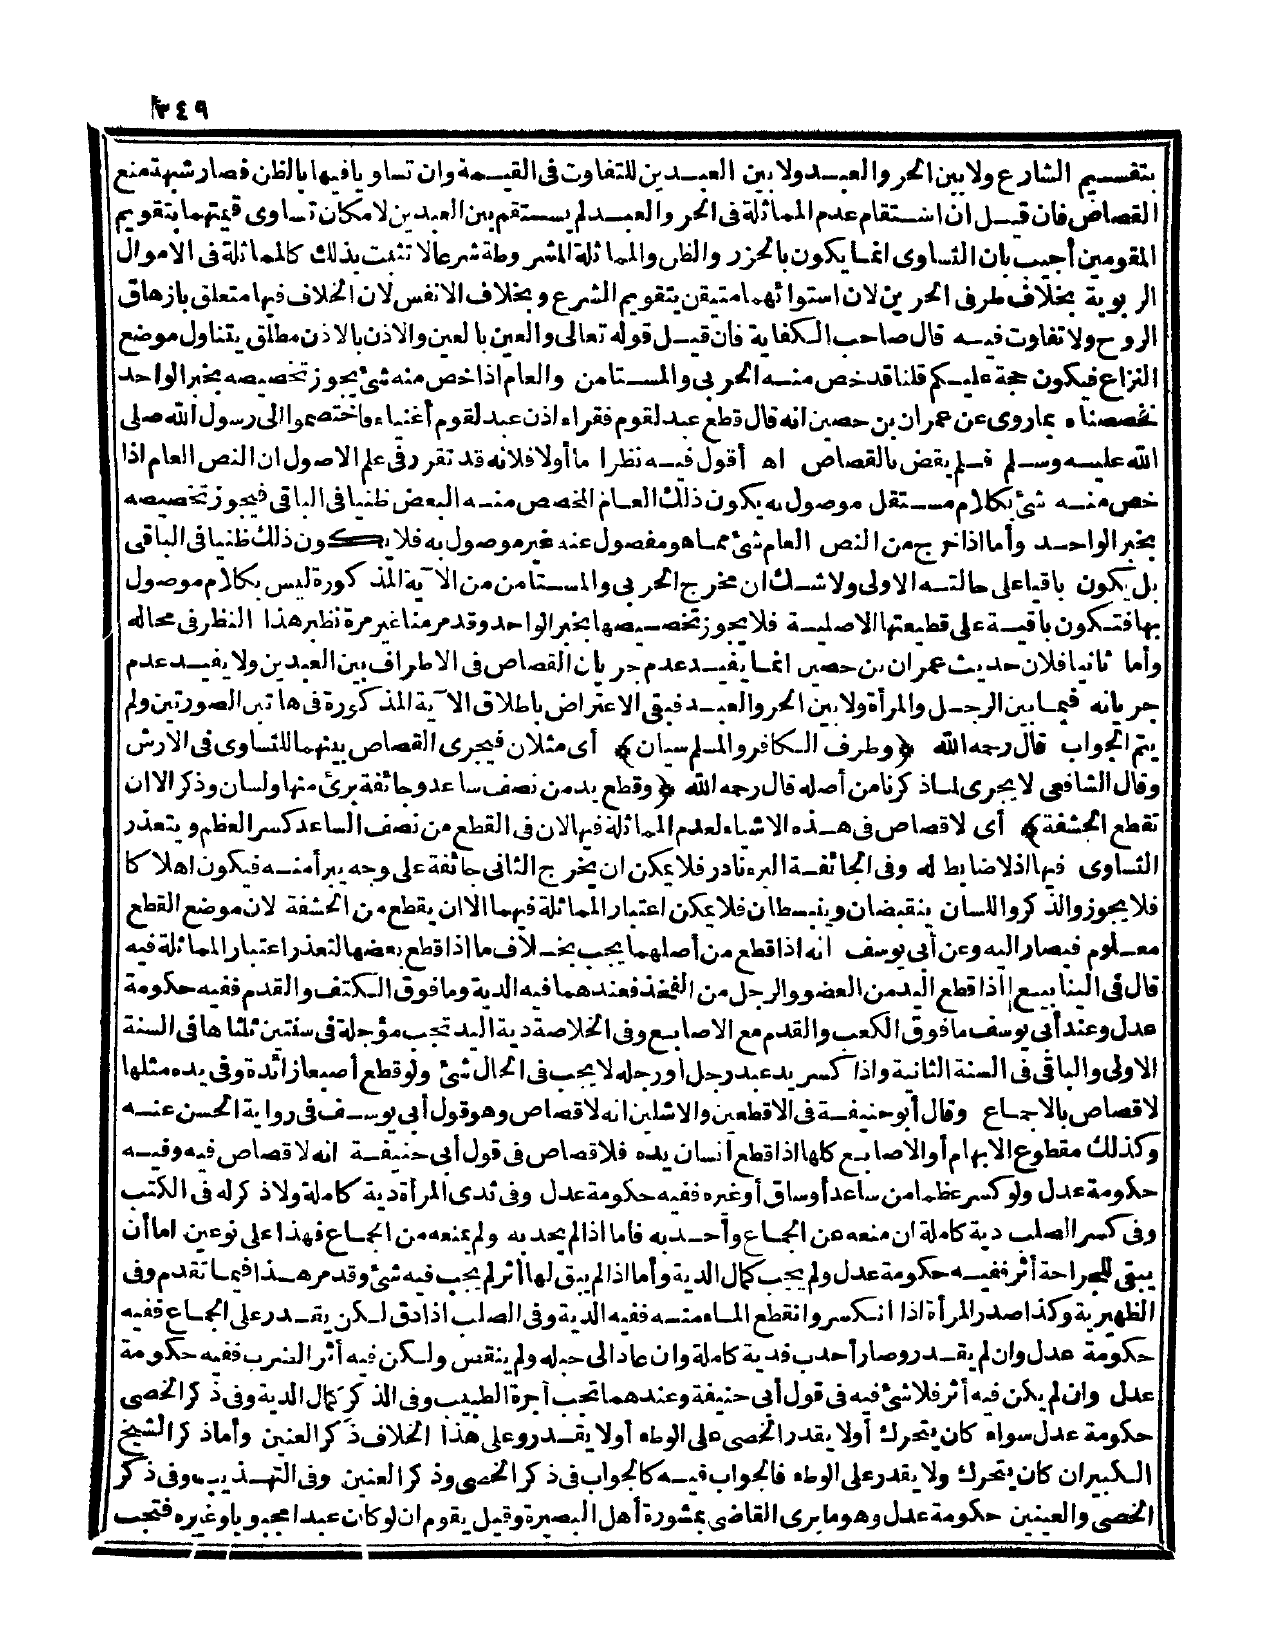 ٣٤٩
بتقسيم الشارع ولا بين الحر والعبد ولا بين العبدين للتفاوت فى القيمة وان تساويا فيها بالظن فصار شبهة منع
القصاص فان قيل ان استقام عدم المماثلة فى الحر والعبد لم يستقم بين العبدين لامكان تساوى قيمتهما بتقويم
المقومين أجيب بان التساوى انما يكون بالحزر والظن والمماثلة المشروطة شرعا لا تثبت بذلك كالمماثلة فى الاموال
الربوية بخلاف طرفى الحرين لان استوائهما متيقن بتقويم الشرع وبخلاف الانفس لان الخلاف فيها متعلق بازهاق
الروح ولا تفاوت فيه قال صاحب الكفاية فان قيل قوله تعالى والعين بالعين والاذن بالاذن مطلق يتناول موضع
النزاع فيكون حجة عليكم قلنا قد خص منه الحربى والمستامن والعام اذا خص منه شئ يجوز تخصيصه بخبر الواحد
نخصصناه بما روى عن عمران بن حصين انه قال قطع عبد لقوم فقراء اذن عبد لقوم أغنياء فاختصموا الى رسول الله صلى
الله عليه وسلم فلم يقض بالقصاص اه أقول فيه نظرا ما أولا فلانه قد تقرر فى علم الاصول ان النص العام اذا
خص منه شئ بكلام مستقل موصول به يكون ذلك العام المخصص منه البعض ظنيا فى الباقى فيجوز تخصيصه
بخبر الواحد وأما اذا خرج من النص العام شئ مما هو مفصول عنه غير موصول به فلا يكون ذلك ظنيا فى الباقى
بل يكون باقيا على حالته الاولى ولا شك ان مخرج الحربى والمستامن من الآية المذكورة ليس بكلام موصول
بها فتكون باقية على قطيعتها الاصلية فلا يجوز تخصيصها بخبر الواحد وقد مر منا غير مرة نظير هذا النظر فى محاله
وأما ثانيا فلان حديث عمران بن حصين انما يفيد عدم جريان القصاص فى الاطراف بين العبدين ولا يفيد عدم
جريانه فيما بين الرجل والمرأة ولا بين الحر والعبد فبقى الاعتراض باطلاق الآية المذكورة فى هاتين الصورتين ولم
يتم الجواب قال رحمه الله ﴿وطرف الكافر والمسلم سيان﴾ أى مثلان فيجرى القصاص بينهما للتساوى فى الارش
وقال الشافعى لا يجرى لما ذكرنا من أصله قال رحمه الله ﴿وقطع يد من نصف ساعد وجائفة برئ منها ولسان وذكر الا ان
تقطع الحشفة﴾ أى لا قصاص فى هذه الاشياء لعدم المماثلة فيها لان فى القطع من نصف الساعد كسر العظم ويتعذر
التساوى فيها اذ لا ضابط له وفى الجائفة البرء نادر فلا يمكن ان يخرج الثانى جائفة على وجه يبرأ منه فيكون اهلاكا
فلا يجوز والذكر واللسان ينقبضان وينبسطان فلا يمكن اعتبار المماثلة فيهما الا ان يقطع من الحشفة لان موضع القطع
معلوم فيصار اليه وعن أبى يوسف انه اذا قطع من أصلهما يجب بخلاف ما اذا قطع بعضها لتعذر اعتبار المماثلة فيه
قال فى الينابيع اذا قطع اليد من العضو والرجل من الفخذ فعندهما فيه الدية وما فوق الكتف والقدم ففيه حكومة
عدل وعند أبى يوسف ما فوق الكعب والقدم مع الاصابع وفى الخلاصة دية اليد تجب مؤجلة فى سنتين ثلثاها فى السنة
الاولى والباقى فى السنة الثانية واذا كسر يد عبد رجل أو رجله لا يجب فى الحال شئ ولو قطع أصبعا زائدة وفى يده مثلها
لا قصاص بالاجماع وقال أبو حنيفة فى الاقطعين والاشلين انه لا قصاص وهو قول أبى يوسف فى رواية الحسن عنه
وكذلك مقطوع الابهام أو الاصابع كلها اذا قطع انسان يده فلا قصاص فى قول أبى حنيفة انه لا قصاص فيه وفيه
حكومة عدل ولو كسر عظما من ساعد أو ساق أو غيره ففيه حكومة عدل وفى ثدى المرأة دية كاملة ولا ذكر له فى الكتب
وفى كسر الصلب دية كاملة ان منعه عن الجماع وأحدبه فاما اذا لم يحدبه ولم يمنعه من الجماع فهذا على نوعين اما أن
يبقى للجراحة أثر ففيه حكومة عدل ولم يجب كمال الدية وأما اذا لم يبق لها أثر لم يجب فيه شئ وقد مر هذا فيما تقدم وفى
الظهيرية وكذا صدر المرأة اذا انكسر وانقطع الماء منه ففيه الدية وفى الصلب اذا دق لكن يقدر على الجماع ففيه
حكومة عدل وان لم يقدر وصار أحدب فدية كاملة وان عاد الى حبله ولم ينقس ولكن فيه أثر الضرب ففيه حكومة
عدل وان لم يكن فيه أثر فلا شئ فيه فى قول أبى حنيفة وعندهما تجب أجرة الطبيب وفى الذكر كمال الدية وفى ذكر الخصى
حكومة عدل سواء كان يتحرك أو لا يقدر الخصى على الوطء أو لا يقدر وعلى هذا الخلاف ذكر العنين وأما ذكر الشيخ
الكبير ان كان يتحرك ولا يقدر على الوطء فالجواب فيه كالجواب فى ذكر الخصى وذكر العنين وفى التهذيب وفى ذكر
الخصى والعينين حكومة عدل وهو ما يرى القاضى بمشورة أهل البصيرة وقيل يقوم ان لو كان عبدا مجبوبا وغيره فتجب